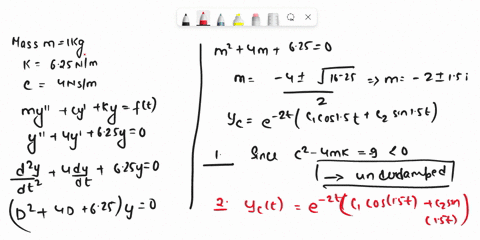 Mass m=1Kg
K = 6.25 N/m
C = 4Ns/m
my'' + cy' + ky = f(t)
y'' + 4y' + 6.25y = 0
d²y/dt² + 4dy/dt + 6.25y = 0
(D² + 4D + 6.25) y = 0
m² + 4m + 6.25 = 0
m = (-4 ± √16-25)/2 => m = -2 ± 1.5 i
y_c = e^-2t (c₁ cos 1.5t + c₂ sin 1.5t)
1. Since c² - 4mk = -9 < 0
→ underdamped
2. y_c(t) = e^-2t (c₁ cos(1.5t) + c₂ sin
(1.5t)